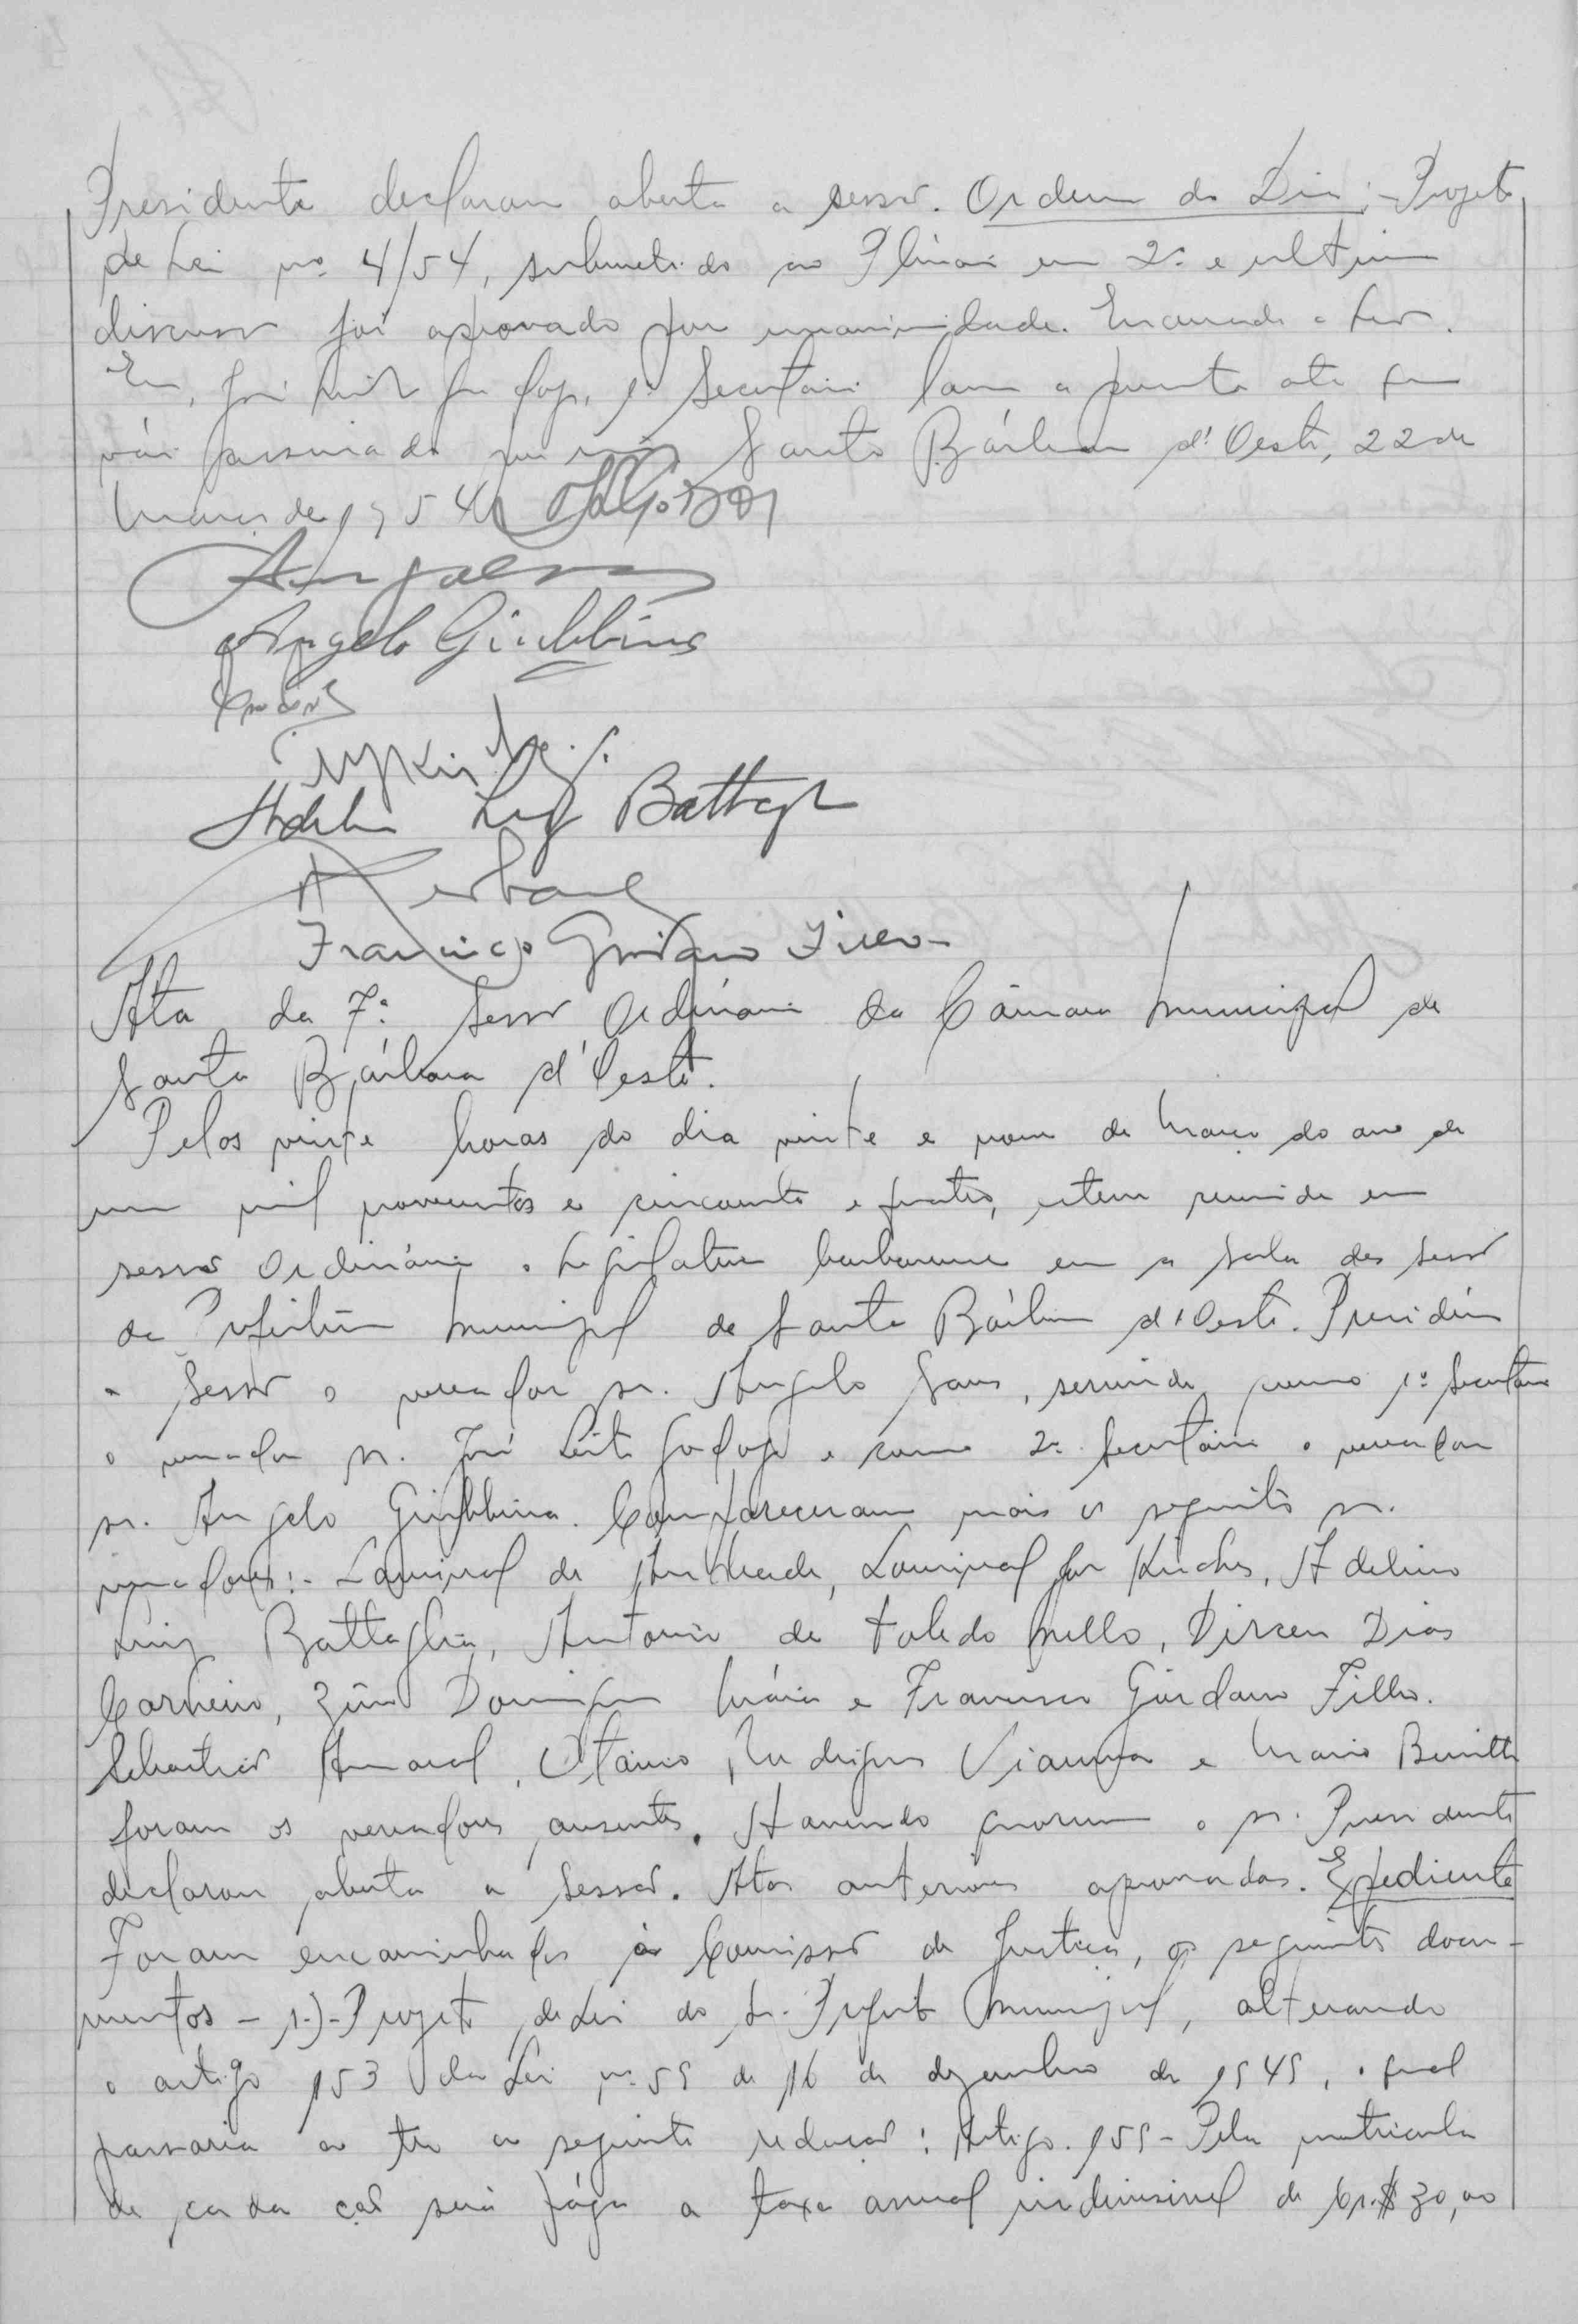 Presidente declarou aberta a sessão. Ordem do Dia:- Projeto
de Lei nº 4/54, submetido ao Plenário em 2ª e ultima
discussão foi aprovado por unanimidade. Encerrada a sessão.
Eu, José Leite Godoy, 1º Secretário lavrei a presente ata que
vai assinada por mim Santa Bárbara d'Oeste, 22 de
Março de 1954
Angelo Giubbina
Adelino Luiz Battaglia
Francisco Giordano Filho
Ata da 7ª Sessão Ordinária da Câmara Municipal de
Santa Bárbara d'Oeste.
Pelas vinte horas do dia vinte e nove de Março do ano de
um mil novecentos e cincoenta e quatro, esteve reunida em
sessão Ordinária o Legislativo barbarense em a sala das sessões
da Prefeitura Municipal de Santa Bárbara d'Oeste. Presidiu
a Sessão o vereador sr. Angelo Sans, servindo como 1º Secretário
o vereador sr. José Leite Godoy e como 2º Secretário o vereador
sr. Angelo Giubbina. Compareceram mais os seguintes srs.
vereadores:- Lourival de Andrade, Lourival Adelino
Luiz Battaglia, Antonio de Toledo Mello, Dirceu Dias
Carneiro, Domingos Mário e Francisco Giordano Filho.
Sebastião Amaral, Otávio Rodrigues Vianna e Mario
foram os vereadores ausentes. Havendo quorum o sr. Presidente
declarou aberta a sessão. Atas anteriores aprovadas. Expediente
Foram encaminhados à Comissão de Justiça, os seguintes docu-
mentos - 1-)- Projeto de Lei do Sr. Prefeito Municipal, alterando
o artigo 153 da Lei nº 59 de 16 de dezembro de 1949, o qual
passaria a ter a seguinte redação: Artigo. 159 - Pela matricula
de cada cão será pága a taxa anual indivisivel de Cr.$ 30,00